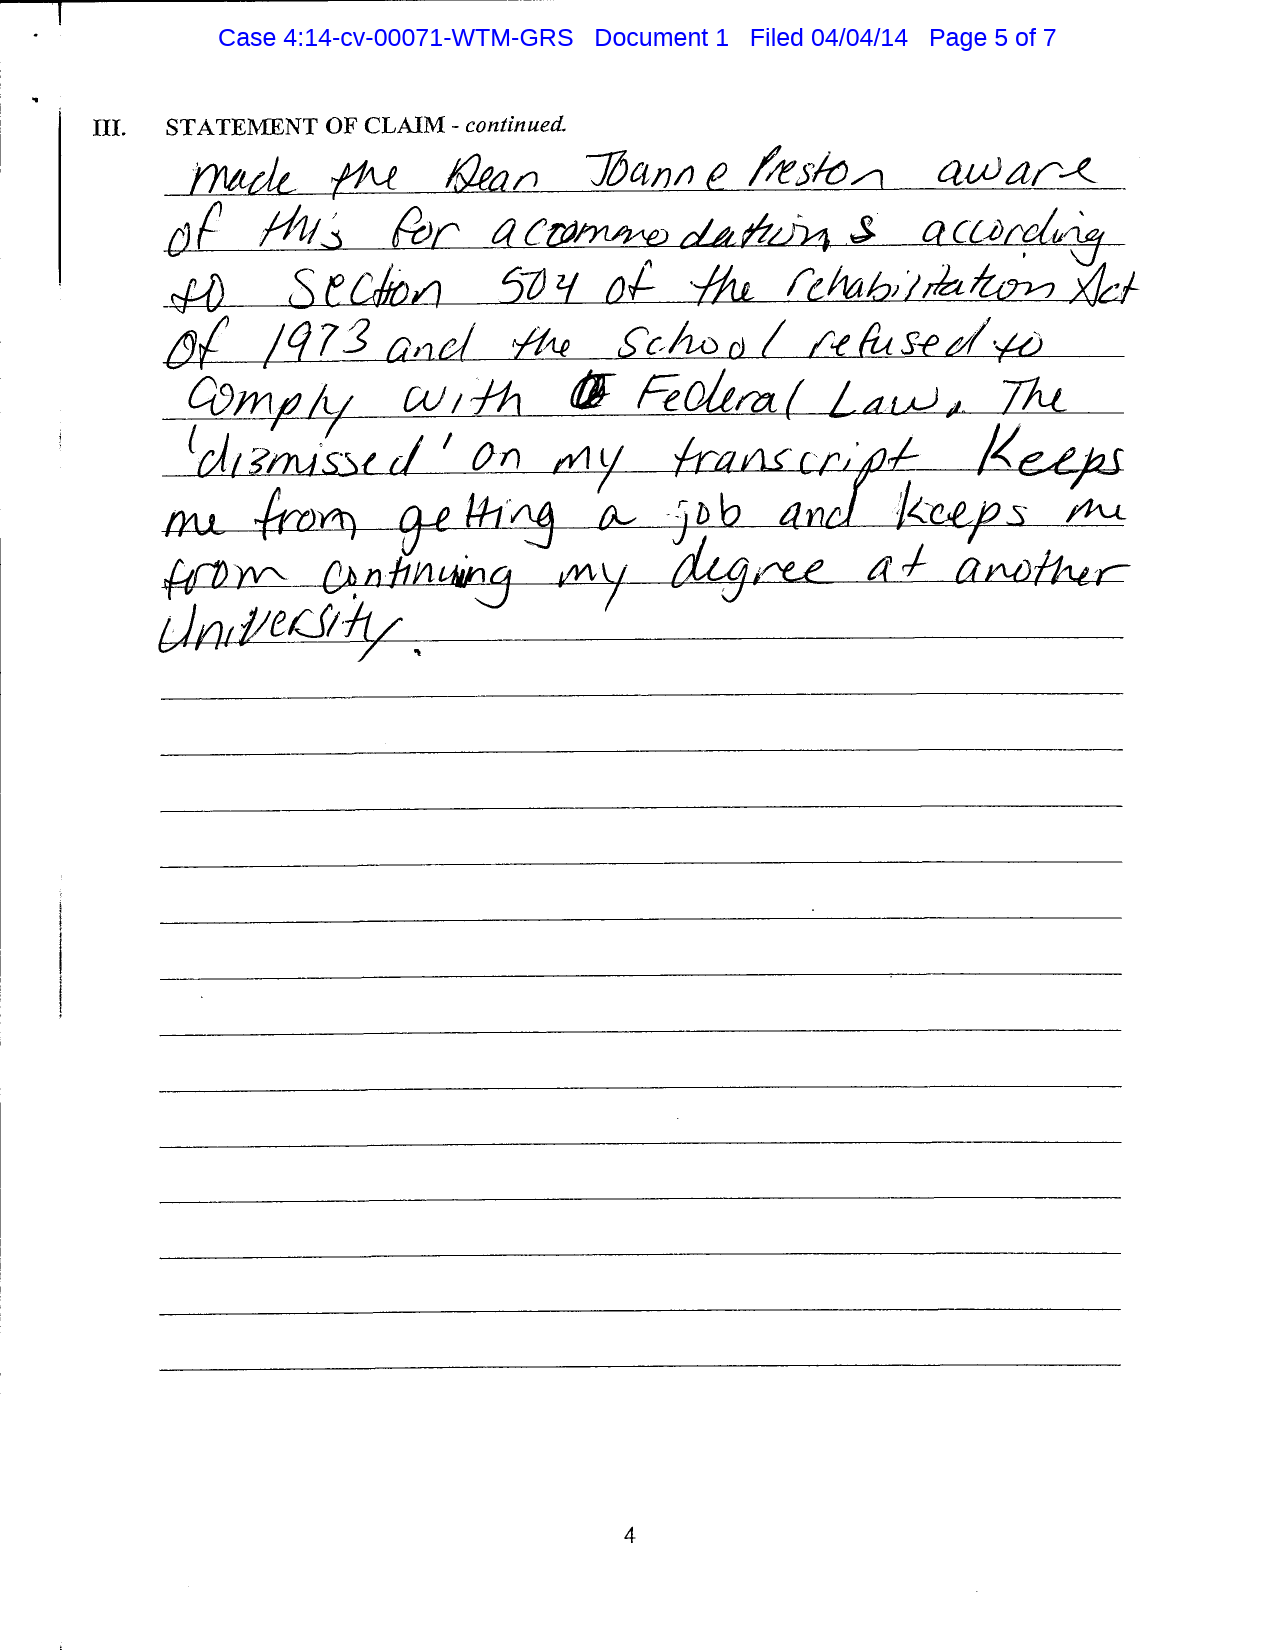 Case 4:14-cv-00071-WTM-GRS Document 1 Filed 04/04/14 Page 5 of 7
III. STATEMENT OF CLAIM - continued.
made the Dean Joanne Preston aware
of this for accommodations according
to Section 504 of the rehabilitation Act
of 1973 and the School refused to
comply with Federal Law. The
'dismissed' on my transcript keeps
me from getting a job and keeps me
from continuing my degree at another
University.
4